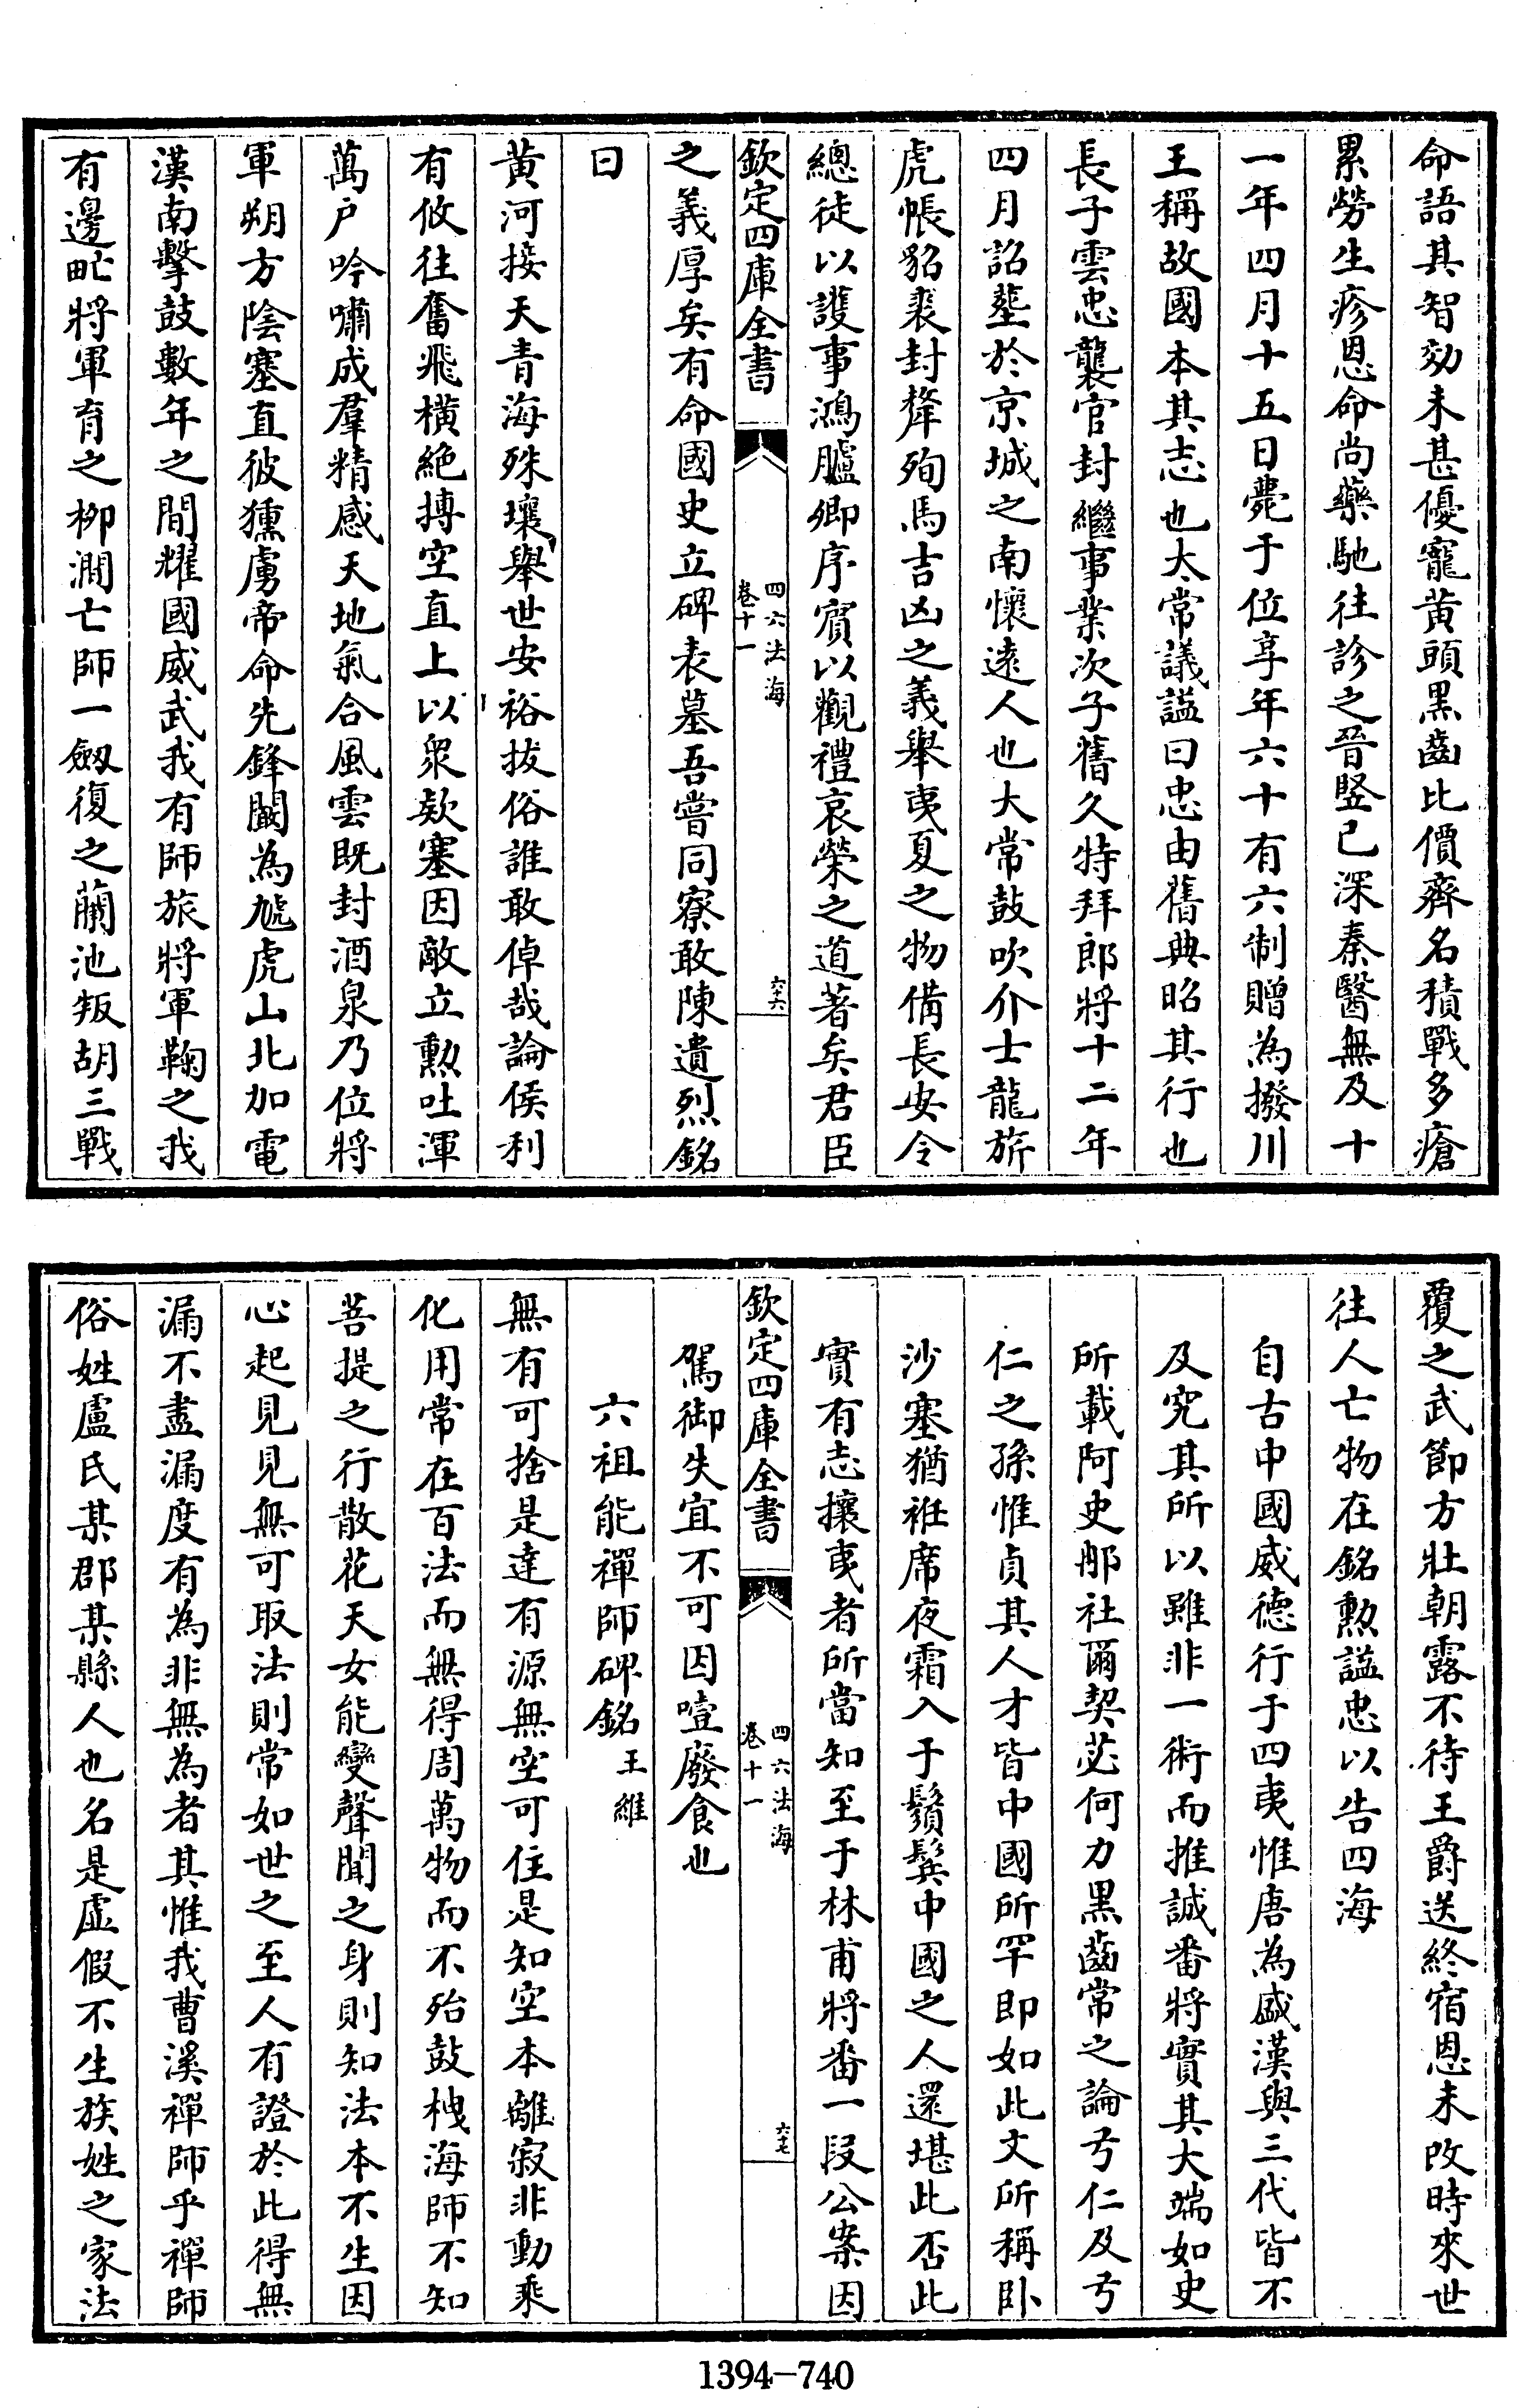 命語其智効未甚優寵黄頭黒齒比價齊名積戰多瘡
累勞生疹恩命尚藥馳往診之晉竪已深秦醫無及十
一年四月十五日薨于位享年六十有六制贈為撥川
王稱故國本其志也太常議諡曰忠由舊典昭其行也
長子雲忠襲官封繼事業次子舊久特拜郎將十二年
四月詔塟於京城之南懷遠人也大常鼓吹介士龍旂
虎帳貂裘封犛殉馬吉凶之義舉夷夏之物備長安令
總徒以護事鴻臚卿序賔以觀禮哀榮之道著矣君臣
欽定四庫全書
四六法海
卷十一
六十六
之義厚矣有命國史立碑表墓吾嘗同寮敢陳遺烈銘
曰
黄河接天青海殊壤舉世安裕拔俗誰敢倬哉論侯利
有攸往奮飛横絶摶空直上以衆欵塞因敵立勲吐渾
萬户吟嘯成羣精感天地氣合風雲既封酒泉乃位將
軍朔方陰塞直彼獯虜帝命先鋒闞為虓虎山北加電
漢南擊鼓數年之間耀國威武我有師旅將軍鞠之我
有邊甿將軍育之栁澗亡師一劔復之蘭池叛胡三戰
覆之武節方壯朝露不待王爵送終宿恩未改時來世
往人亡物在銘勲諡忠以告四海
自古中國威德行于四夷惟唐為盛漢與三代皆不
及究其所以雖非一術而推誠番將實其大端如史
所載阿史那社爾契苾何力黒齒常之論弓仁及弓
仁之孫惟貞其人才皆中國所罕即如此文所稱卧
沙塞猶袵席夜霜入于鬚鬂中國之人還堪此否此
實有志攘夷者所當知至于林甫將番一段公案因
欽定四庫全書
四六法海
卷十一
六十七
駕御失宜不可因噎廢食也
六祖能禪師碑銘 王維
無有可捨是達有源無空可住是知空本離寂非動乘
化用常在百法而無得周萬物而不殆鼓枻海師不知
菩提之行散花天女能變聲聞之身則知法本不生因
心起見見無可取法則常如世之至人有證於此得無
漏不盡漏度有為非無為者其惟我曹溪禪師乎禪師
俗姓盧氏某郡某縣人也名是虚假不生族姓之家法
1394-740